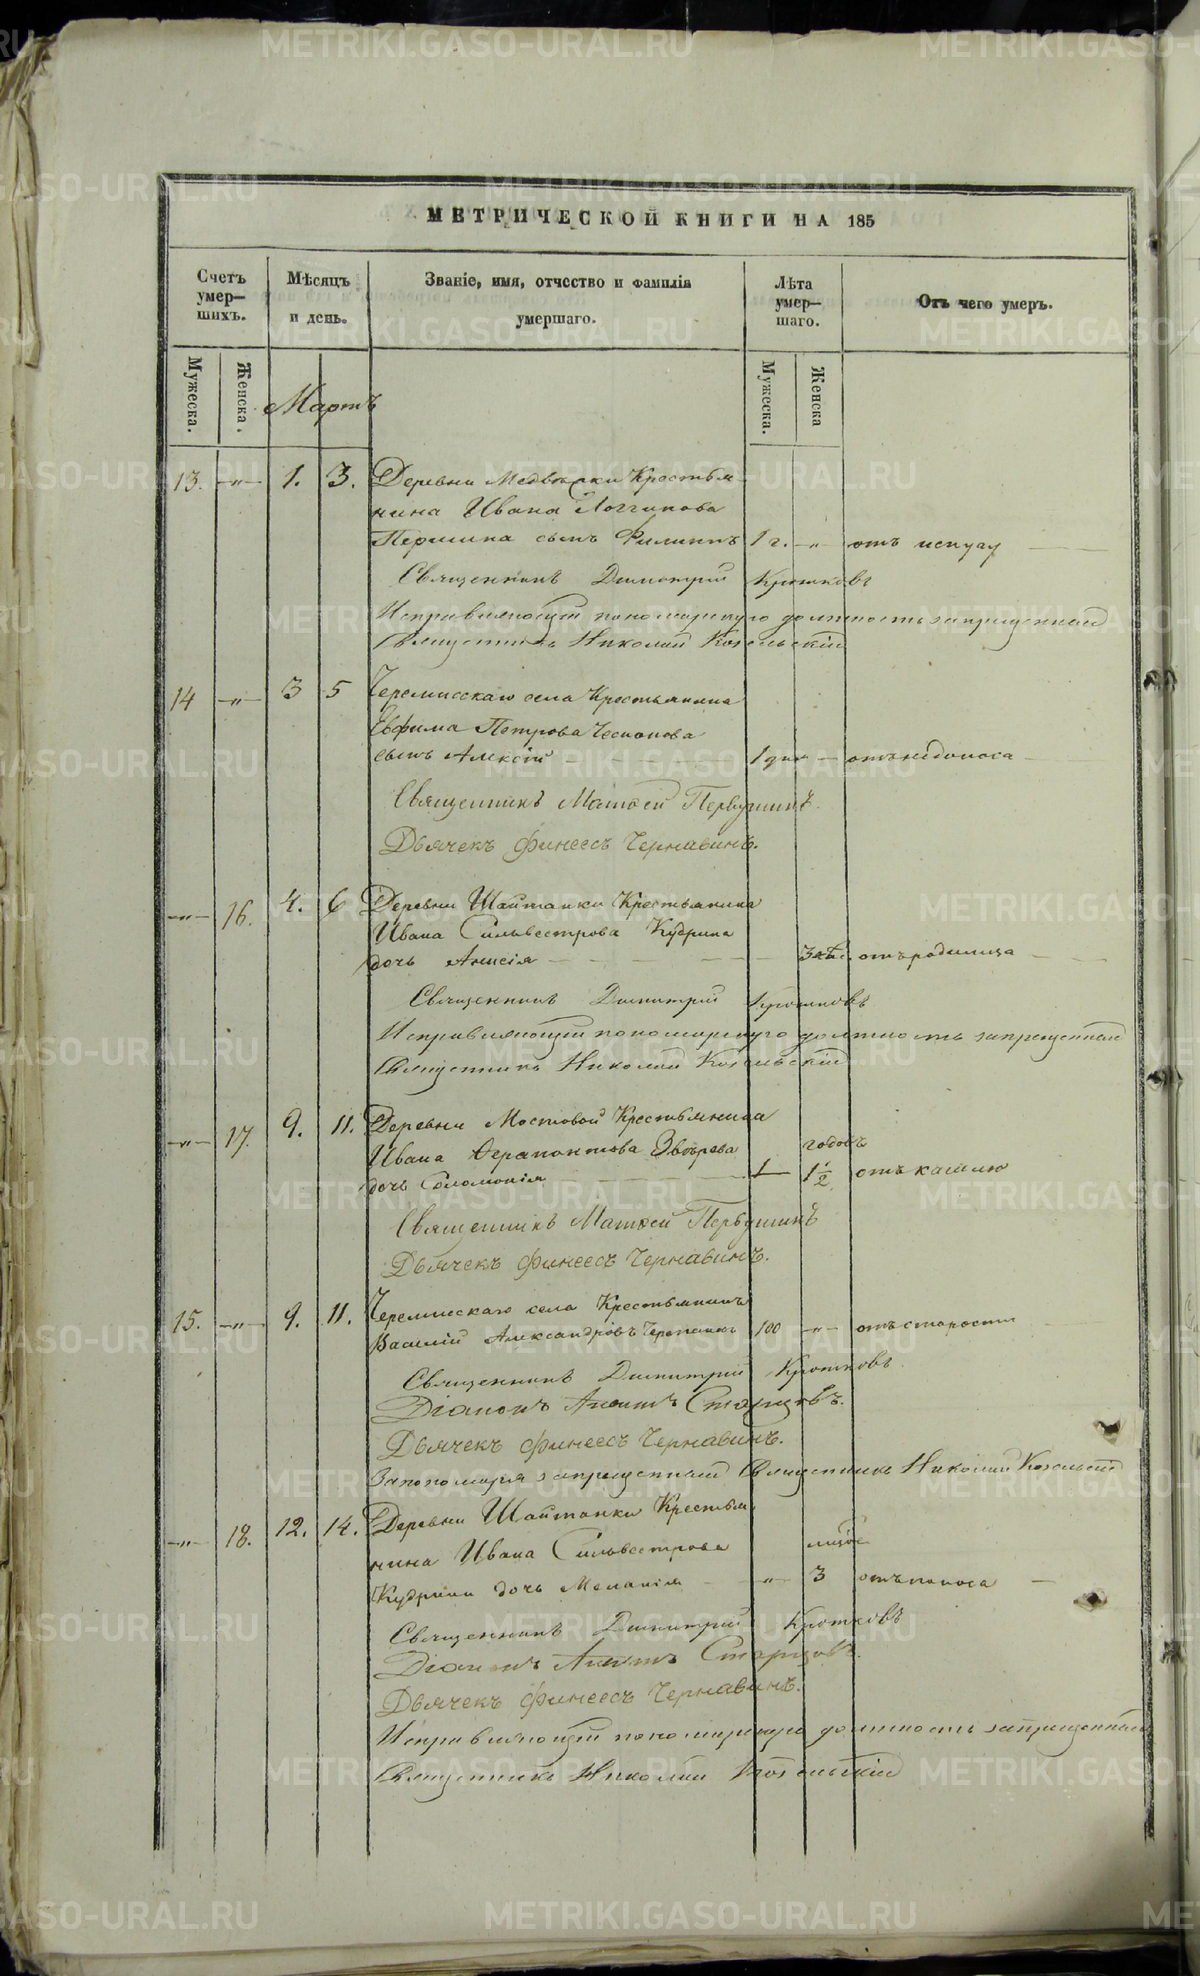 МЕТРИЧЕСКОЙ КНИГИ НА 185
Счетъ умер—шихъ.
Мѣсяцъ и день.
Званіе, имя, отчество и фамилія умершаго.
Лѣта умер—шаго.
Отъ чего умеръ.
Мужеска.
Женска.
Мартъ
Мужеска.
Женска
13. —„— 1. 3. Деревни Медвѣдки Крестья-
нина Ивана Логгинова
Першина сынъ Филиппъ 1 г. —„— отъ испугу
Священникъ Димитрій Кротковъ
Исправляющій пономарскую должность запрещенный
Священникъ Николай Козельскій
14 —„— 3 5 Черемисскаго села Крестьянина
Евфима Петрова
сынъ Алексій 1 дня — отъ недоноса
Священникъ Матѳей Первушинъ.
Дьячекъ Финеесъ Чернавинъ.
—„— 16. 4. 6 Деревни Шайтанки Крестьянина
Ивана Сильвестрова Кудрина
дочь Анисія отъ родимца
Священникъ Димитрій Кротковъ
Исправляющій пономарскую должность запрещенный
Священникъ Николай Козельскій
—„— 17. 9. 11. Деревни Мостовой Крестьянина
Ивана Ѳерапонтова Звѣрева годовъ
дочь Соломонія 1 1/2 отъ кашлю
Священникъ Матѳей Первушинъ
Дьячекъ Финеесъ Чернавинъ.
15. —„— 9. 11. Черемисскаго села Крестьянинъ
Василій Александровъ 100 —„— отъ старости
Священникъ Димитрій Кротковъ.
Діаконъ Старцовъ.
Дьячекъ Финеесъ Чернавинъ.
За пономаря запрещенный Священникъ Николай Козельскій
—„— 18. 12. 14. Деревни Шайтанки Крестья
нина Ивана Сильвестрова
Кудрина дочь Меланія —„— 3 отъ поноса
Священникъ Димитрій Кротковъ
Діаконъ Старцовъ.
Дьячекъ Финеесъ Чернавинъ.
Исправляющій пономарскую должность запрещенный
Священникъ Николай Козельскій
METRIKI.GASO-URAL.RU